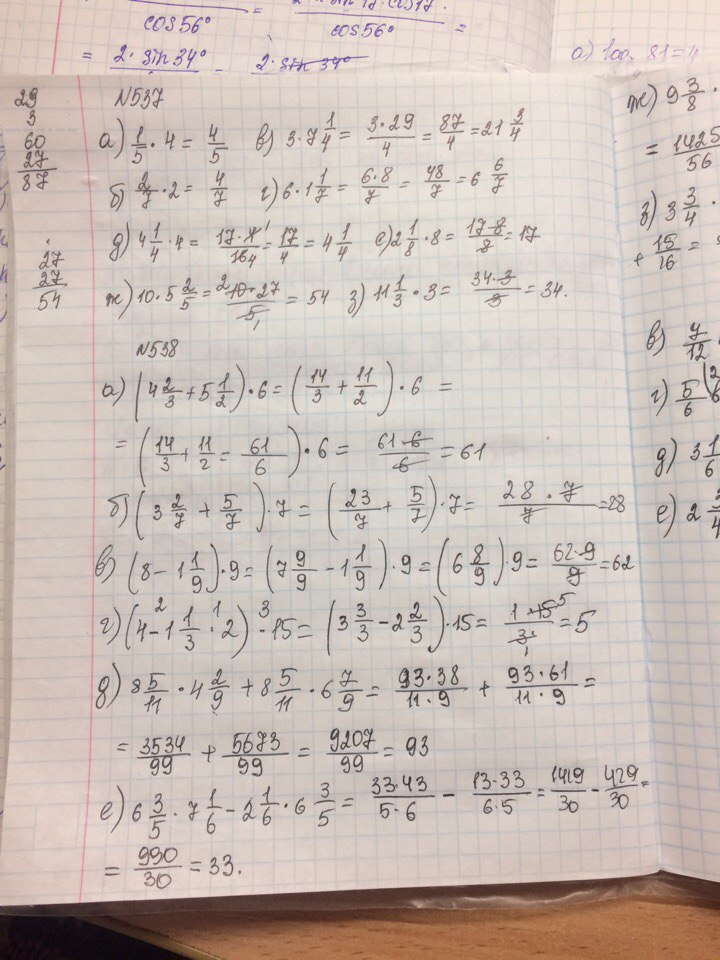 cos56° = 2·sin17·cos17·
cos56° =
= 2·sin34° - 2·sin34°
а) log 81=4
29
3
60
27
87
27
27
54
N537
а) 1/5 · 4 = 4/5 в) 3·7 1/4 = 3·29/4 = 87/4 = 21 3/4
б) 2/7 · 2 = 4/7 г) 6·1 1/7 = 6·8/7 = 48/7 = 6 6/7
д) 4 1/4 · 4 = 17·4/16 4 = 17/4 = 4 1/4 е) 2 1/8 · 8 = 17·8/8 = 17
ж) 10·5 2/5 = 2 10·27/5 1 = 54 з) 11 1/3 · 3 = 34·3/3 = 34.
N538
а) (4 2/3 + 5 1/2)·6 = (14/3 + 11/2)·6 =
= (14/3 + 11/2 = 61/6)·6 = 61·6/6 = 61
б) (3 2/7 + 5/7)·7 = (23/7 + 5/7)·7 = 28·7/7 = 28
в) (8 - 1 1/9)·9 = (7 9/9 - 1 1/9)·9 = (6 8/9)·9 = 62·9/9 = 62
г) (4 - 1 1/3 · 2)·15 = (3 3/3 - 2 2/3)·15 = 1·15 5/3 1 = 5
д) 8 5/11 · 4 2/9 + 8 5/11 · 6 7/9 = 93·38/11·9 + 93·61/11·9 =
= 3534/99 + 5673/99 = 9207/99 = 93
е) 6 3/5 · 7 1/6 - 2 1/6 · 6 3/5 = 33·43/5·6 - 13·33/6·5 = 1419/30 - 429/30 =
= 990/30 = 33.
ж) 9 3/8 ·
= 1425/56
з) 3 3/4 ·
+ 15/16 =
в) 7/12
г) 5/6 (
д) 3 1/6
е) 2 3/4